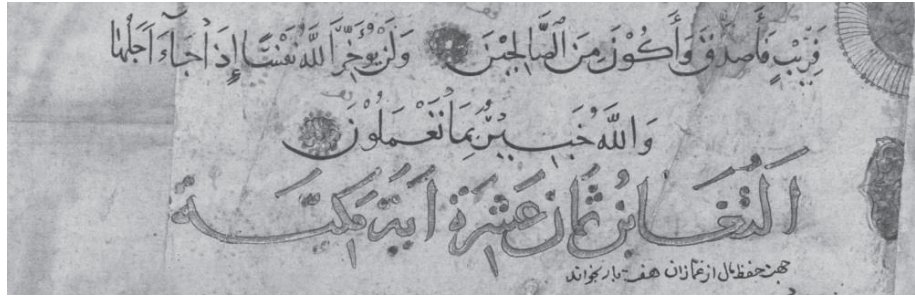 قَرِيْبٍ فَأَصَّدَّقَ وَأَكُوْنَ مِنَ الصَّالِحِيْنَ وَلَنْ يُؤَخِّرَ اللَّهُ نَفْسًا إِذَا جَآءَ أَجَلُهَا
وَاللَّهُ خَبِيْرٌ بِمَا تَعْمَلُوْنَ
اَلتَّغَابُنِ ثَمَانَ عَشْرَةَ ايَةً مَكِيَّة
جهت حفظ مال از غمازان هفت بار بخواند